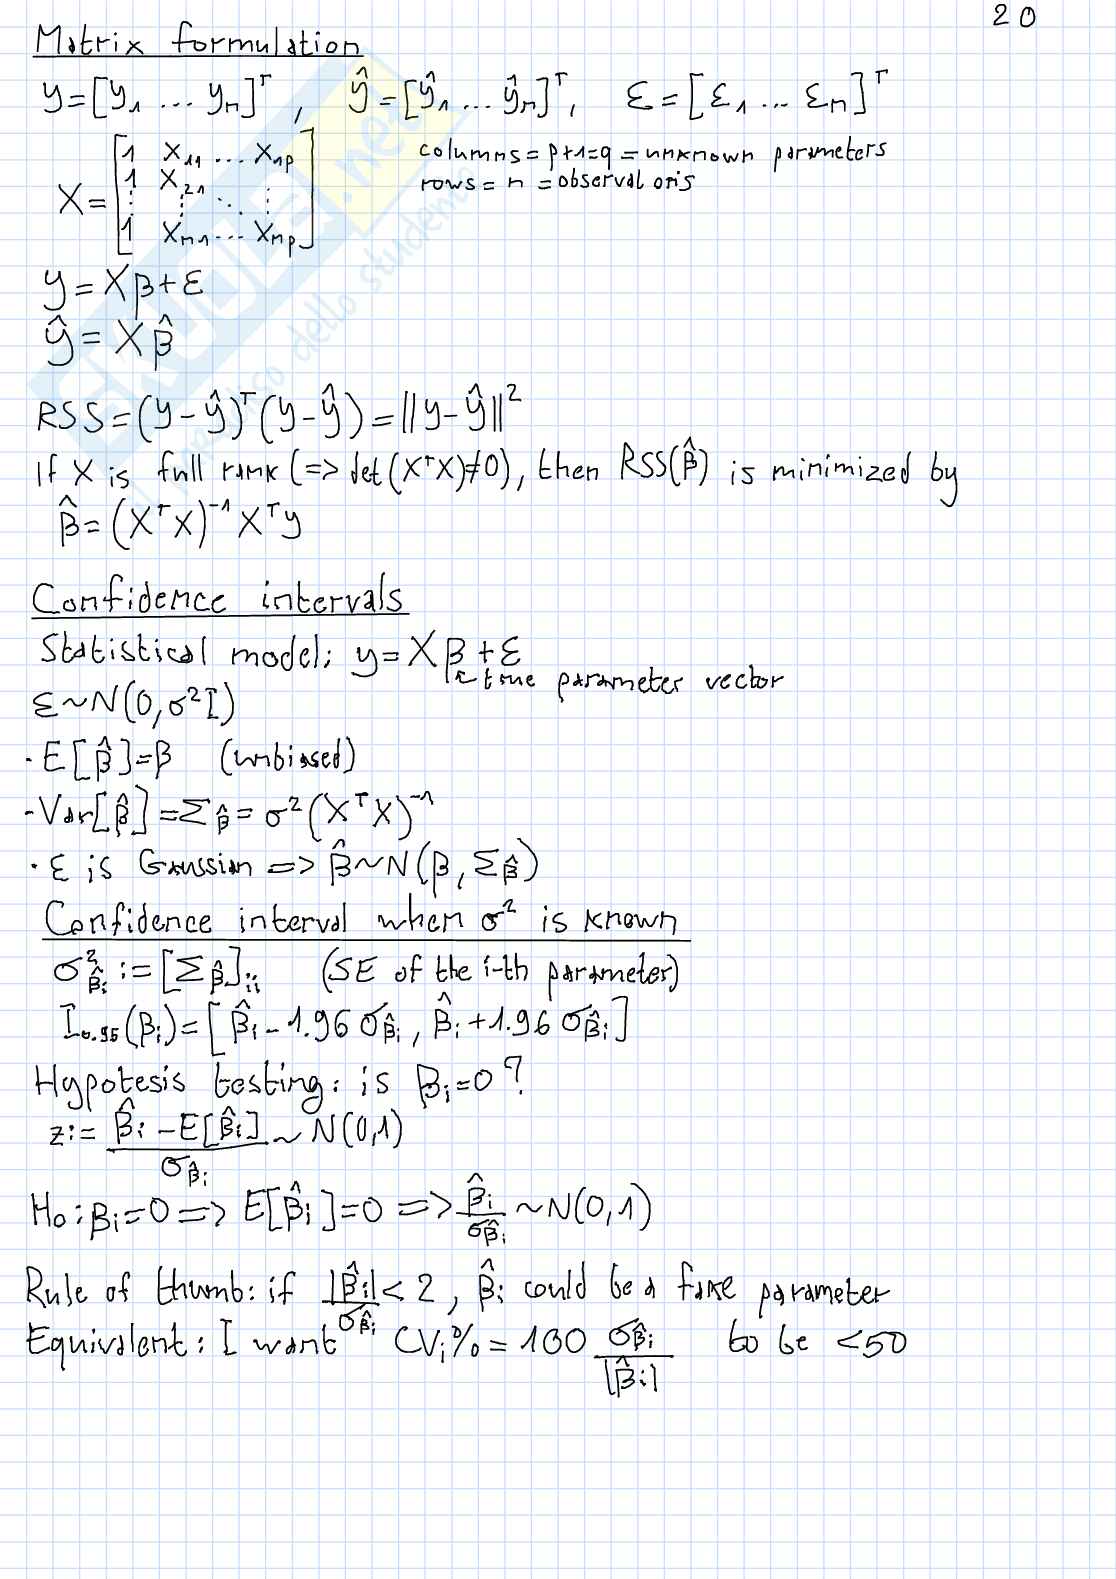 20
Matrix formulation
y=[y₁ ... yₙ]ᵀ, ŷ=[ŷ₁ ... ŷₙ]ᵀ, ε=[ε₁ ... εₙ]ᵀ
X=[1 x₁₁ ... x₁ₚ
1 x₂₁ ⋮
⋮ ⋮ ⋱ ⋮
1 xₙ₁ ... xₙₚ]
columns=p+1=q=unknown parameters
rows=n=observations
y=Xβ+ε
ŷ=Xβ̂
RSS=(y-ŷ)ᵀ(y-ŷ)=||y-ŷ||²
If X is full rank (=>det(XᵀX)≠0), then RSS(β̂) is minimized by
β̂=(XᵀX)⁻¹Xᵀy
Confidence intervals
Statistical model: y=Xβ+ε
↖true parameter vector
ε~N(0,σ²I)
·E[β̂]=β (unbiased)
·Var[β̂]=Σ_β̂=σ²(XᵀX)⁻¹
·ε is Gaussian => β̂~N(β,Σ_β̂)
Confidence interval when σ² is known
σ²_β̂ᵢ:=[Σ_β̂]ᵢᵢ (SE of the i-th parameter)
I₀.₉₅(βᵢ)=[β̂ᵢ-1.96 σ_β̂ᵢ, β̂ᵢ+1.96 σ_β̂ᵢ]
Hypotesis testing: is βᵢ=0?
z:=(β̂ᵢ-E[β̂ᵢ])/σ_β̂ᵢ ~N(0,1)
H₀:βᵢ=0=>E[β̂ᵢ]=0=>β̂ᵢ/σ_β̂ᵢ ~N(0,1)
Rule of thumb: if |β̂ᵢ|/σ_β̂ᵢ<2, β̂ᵢ could be a fake parameter
Equivalent: I want CVᵢ%=100 σ_β̂ᵢ/|β̂ᵢ| to be <50